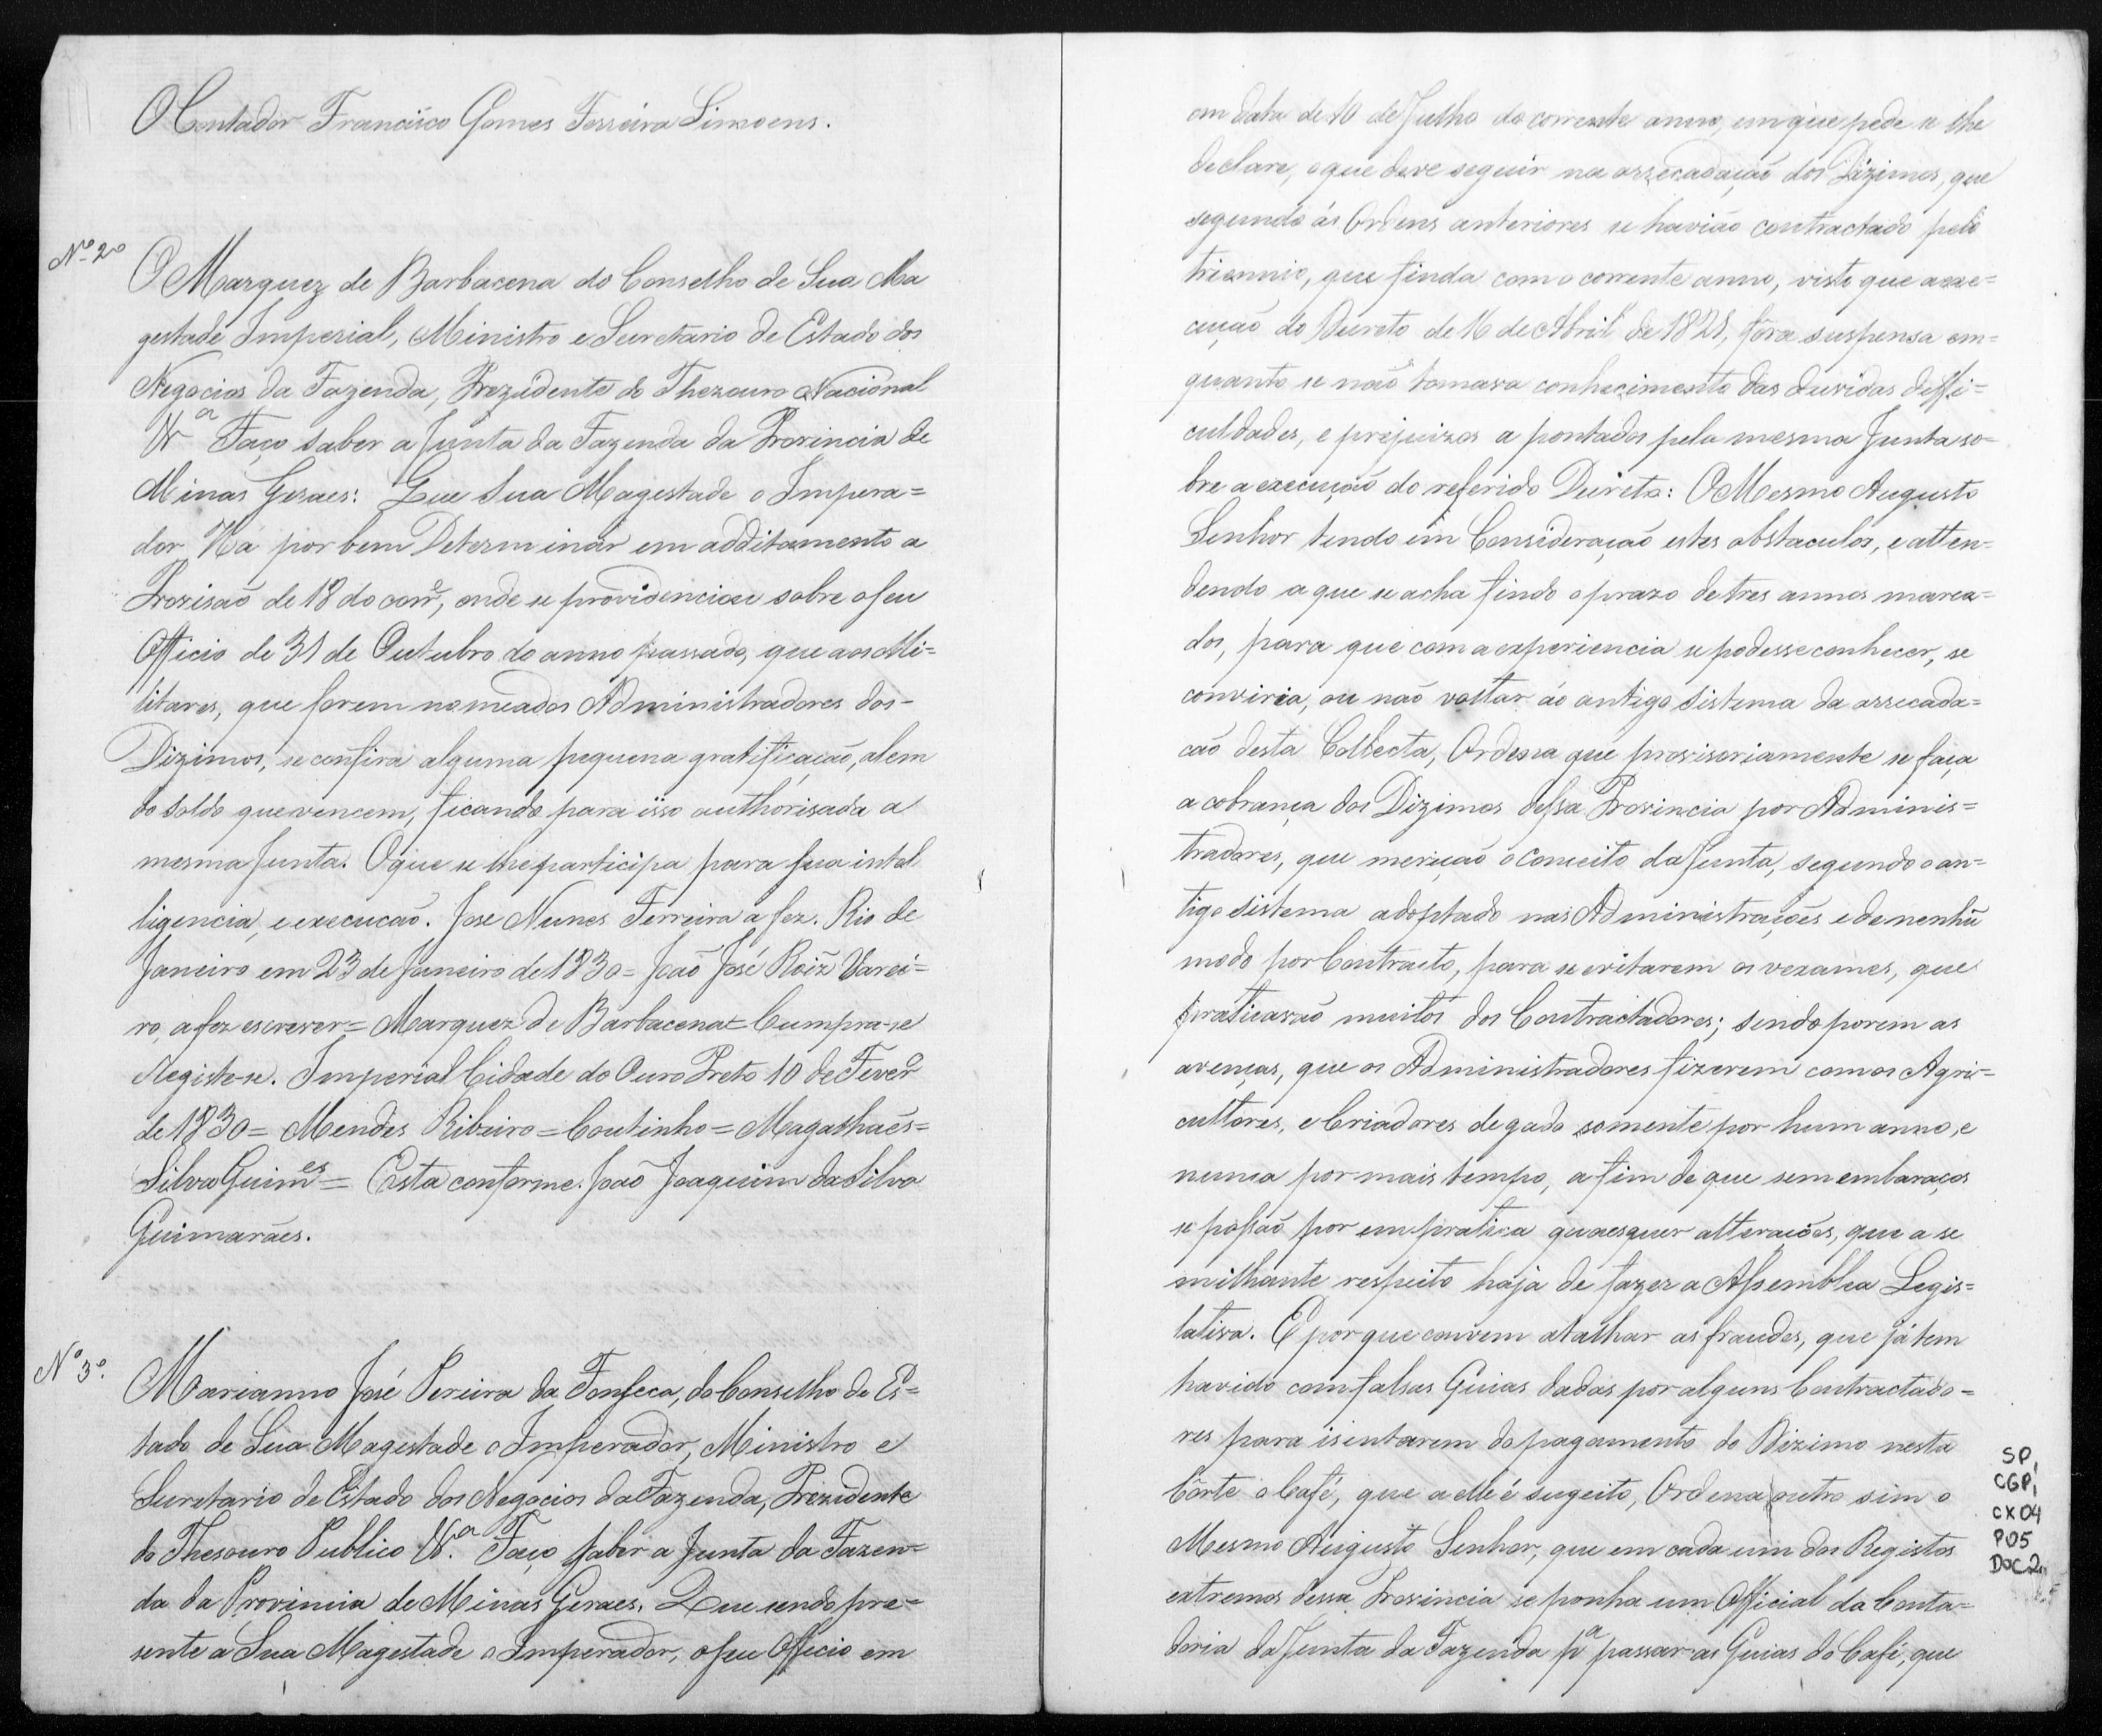 O Contador Francisco Gomes Ferreira Simoens.
Nº 2º
O Marquez de Barbacena do Conselho de Sua Ma
gestade Imperial, Ministro e Secretario de Estado dos
Negocios da Fazenda, Prezidente do Thezouro Nacional
Vª Faço saber a Junta da Fazenda da Provincia de
Minas Geraes: Que Sua Magestade o Impera=
dor Ha por bem Determinar em additamento a
Provisaõ de 18 do corrᵉ, onde se providenciou sobre o seu
Officio de 31 de Outubro do anno passado, que aos Mi=
litares, que forem nomeados Administradores dos-
Dizimos, se confira alguma pequena gratificaçaõ, alem
do Soldo que vencem, ficando para isso authorisada a
mesma Junta. O que se lhe participa para sua intel
ligencia, e execucaõ. Jose Nunes Ferreira a fez. Rio de
Janeiro em 23 de Janeiro de 1830= Joaõ José Roiz Varei=
ro, a fez escrever= Marquez de Barbacena= Cumpra-se
Registe-se. Imperial Cidade do Ouro Preto 10 de Feverº
de 1830= Mendes Ribeiro= Coutinho= Magalhaẽs=
Silva Guimᵉˢ= Esta conforme. Joaõ Joaquim da Silva
Guimarães.
Nº 3º.
Marianno José Pereira da Fonseca, do Conselho de Es=
tado de Sua Magestade o Imperador, Ministro e
Secretario de Estado dos Negocios da Fazenda, Prezidente
do Thesouro Publico Vª. Faço saber a Junta da Fazen=
da da Provincia de Minas Geraes. Que sendo pre=
sente a Sua Magestade o Imperador, o seu Officio em
em data de 10 de Julho do corrente anno, em que pede se lhe
declare, o que deve seguir na arrecadaçaõ dos Dizimos, que
segundo ás Ordens anteriores se haviaõ contractado pelo
triennio, que finda com o corrente anno, visto que a exe=
cuçaõ do Decreto de 16 de Abril de 1821, fôra suspensa em=
quanto se naõ tomava conhecimento das duvidas diffi=
culdades, e prejuizos a pontados pela mesma Junta so=
bre a execuçaõ do referido Decreto: O Mesmo Augusto
Senhor tendo em Consideraçaõ estes obstaculos, e atten=
dendo a que se acha findo o prazo de tres annos marca=
dos, para que com a experiencia se podesse conhecer, se
conviria, ou naõ voltar áo antigo sistema da arrecada=
caõ desta Collecta, Ordena que provisoriamente se faça
a cobrança dos Dizimos dessa Provincia por Adminis=
tradores, que mereçaõ o conceito da Junta, segundo o an=
tigo sistema adoptado nas Administrações e de nenhũ
modo por Contracto, para se evitarem os vexames, que
praticavaõ muitos dos Contractadores; sendo porem as
avenças, que os Administradores fizerem com os Agri=
cultores, e Criadores de gado somente por hum anno, e
nunca por mais tempo, a fim de que sem embaraços
se possaõ por em pratica quaesquer alterações, que a se
milhante respeito haja de fazer a Assemblea Legis=
lativa. E por que convem atalhar as fraudes, que já tem
havido com falsas Guias dadas por alguns Contractado=
res para isentarem do pagamento do Dizimo nesta
Côrte o Café, que a elle é sugeito, Ordena outro sim o
Mesmo Augusto Senhor, que em cada um dos Registos
extremos dessa Provincia se ponha um Official da Conta=
doria da Junta da Fazenda pª passar as Guias do Café, que
SP,
CGP,
CX04
P05
DOC2